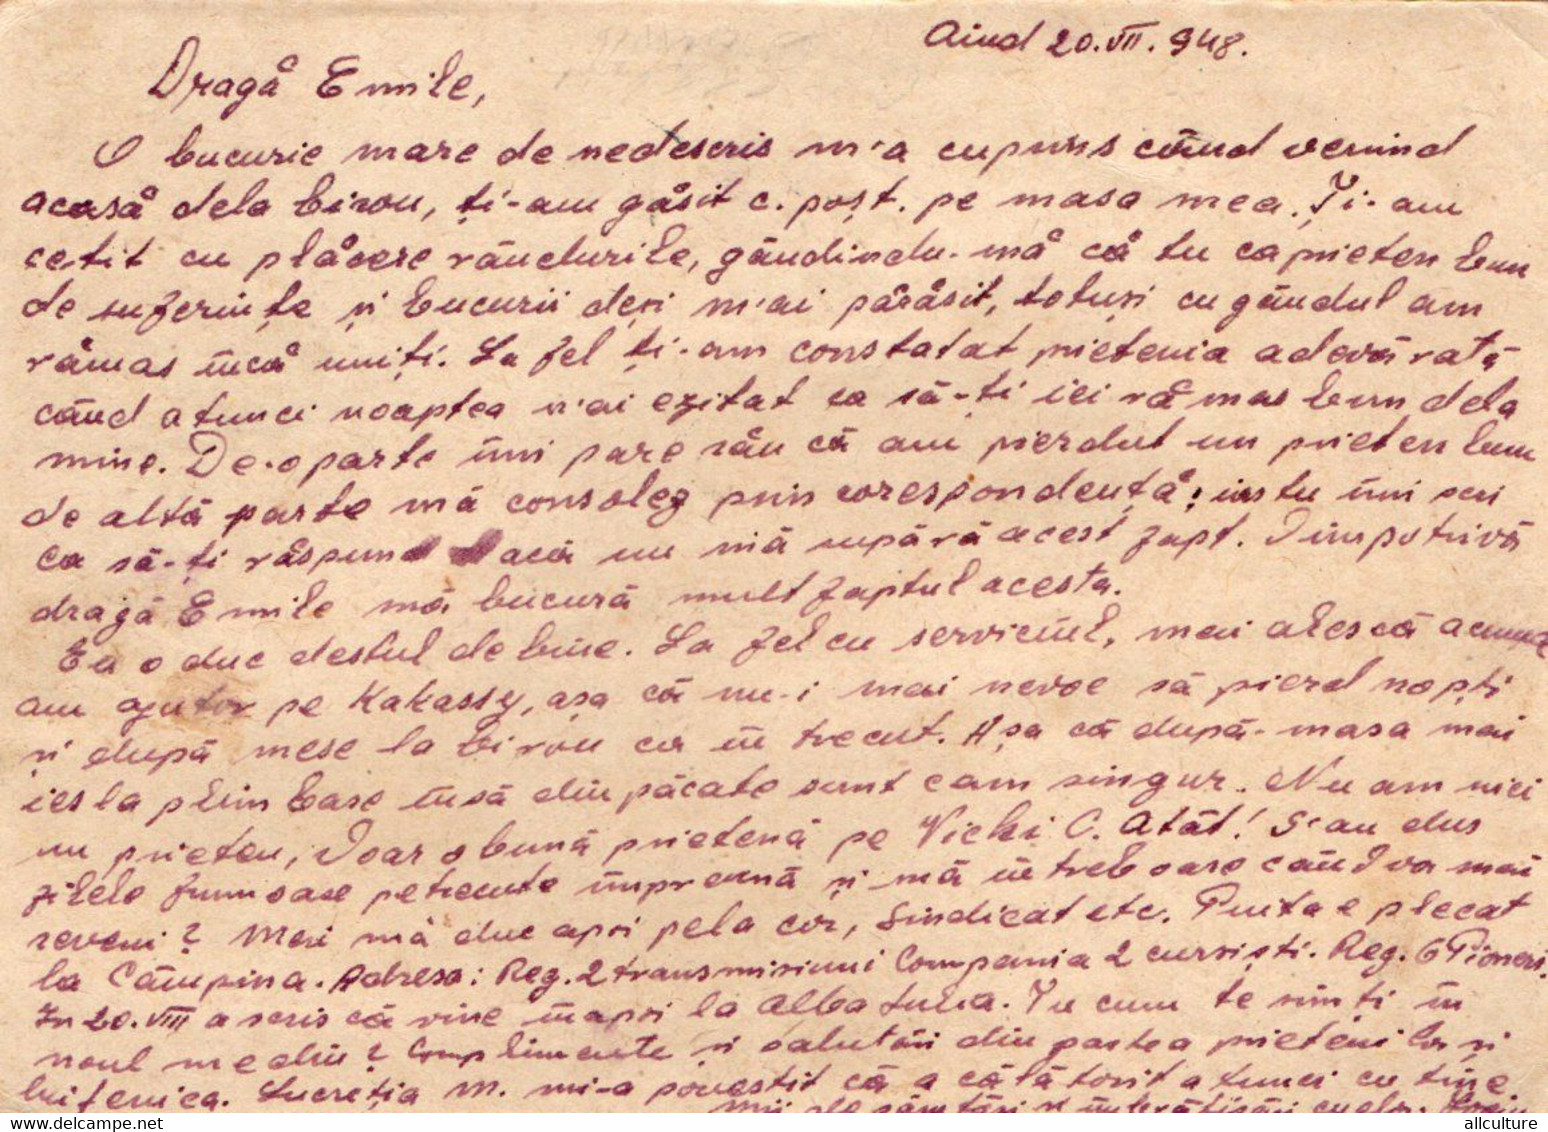 Aiud 20.VII.948.
Dragă Emile,
O bucurie mare de nedescris m'a cuprins când venind
acasă dela birou, ți-am găsit c. poșt. pe masa mea. Ți-am
cetit cu plăcere rândurile, gândindu-mă că tu ca prieten bun
de suferințe și bucurii deși m'ai părăsit, totuși cu gândul am
rămas încă uniți. La fel ți-am constatat prietenia adevărată
când atunci noaptea n'ai ezitat ca să-ți iei rămas bun dela
mine. De-o parte îmi pare rău că am pierdut un prieten bun
de altă parte mă consolez prin corespondență; iar tu îmi scri
ca să-ți răspund dacă nu mă supără acest fapt. Dimpotrivă
dragă Emile mă bucură mult faptul acesta.
Eu o duc destul de bine. La fel cu serviciul, mai ales că acuma
am ajutor pe Kakassy, așa că nu-i mai nevoe să pierd nopți
și după mese la birou ca în trecut. Așa că după-masa mai
ies la plimbare însă din păcate sunt cam singur. Nu am nici
un prieten, Doar o bună prietenă pe Vicki C. Atât! S'au dus
zilele frumoase petrecute împreună și mă întreb oare când va mai
reveni? Mai mă duc apoi pela cor, Sindicat etc. Puița e plecat
la Câmpina. Adresa: Reg. 2 transmisiuni Compania 2 cursiști. Reg. 6 Pioneri.
In 20.VIII a scris că vine înapoi la Alba Iulia. Tu cum te simți în
noul mediu? Complimente și salutări din partea prietenilor și
Lucreția M. mi-a povestit că a călătorit atunci cu tine.
Mii de sărutări și îmbrățișări
allculture